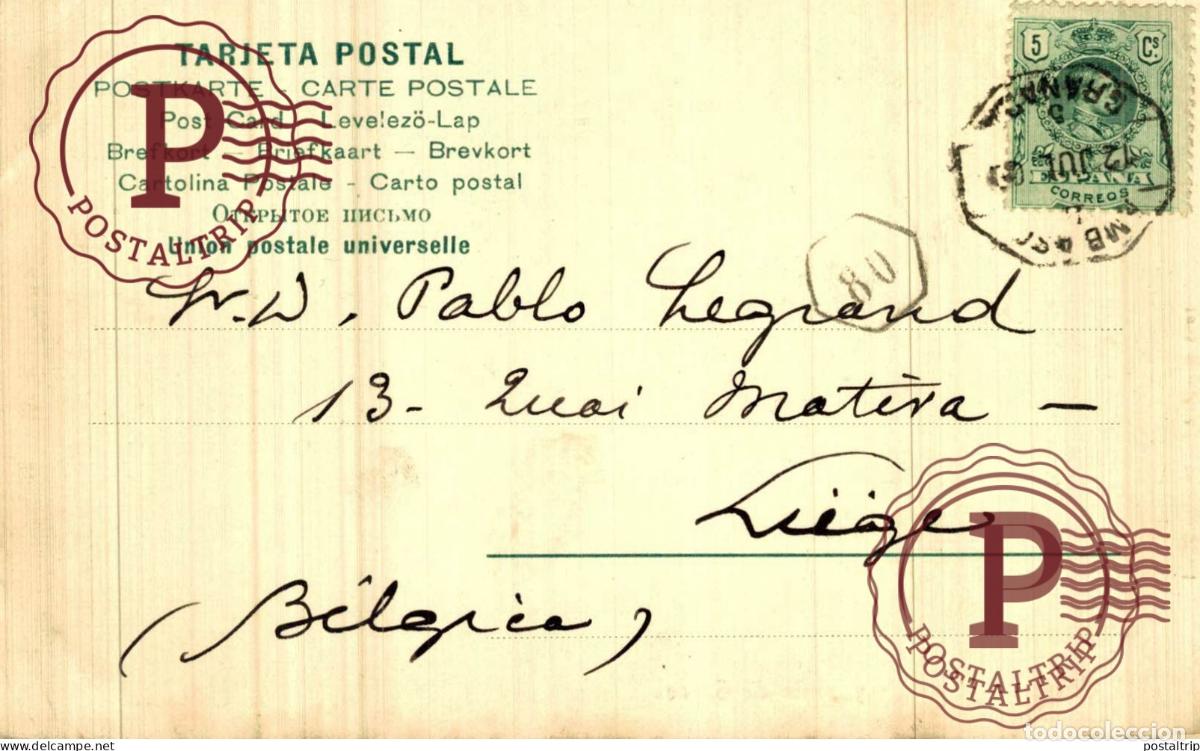 TARJETA POSTAL
POSTKARTE - CARTE POSTALE
Post Card - Levelezö-Lap
Brefkort — Briefkaart — Brevkort
Cartolina Postale - Carto postal
Открытое письмо
Union postale universelle
P
POSTALTRIP
5 Cs
ESPAÑA
CORREOS
12 JUL
80
Sr. D. Pablo Legrand
13 - Quai Mativa -
Liége
(Bélgica)
P
POSTALTRIP
POSTALTRIP
todocoleccion
www.delcampe.net
postaltrip